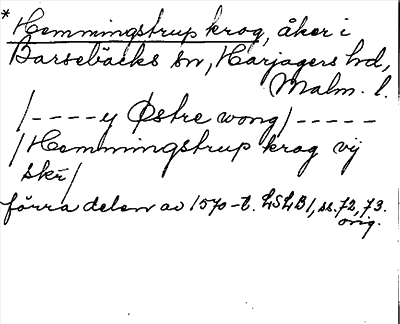 * Hemmingstrup krog, åker i
Barsebäcks sn, Harjagers hd,
Malm. l.
/----y Østre wong/-----
/Hemmingstrup krog vij
skr/
förra delen av 1570-t. LSLB1, ss. 72, 73.
orig.